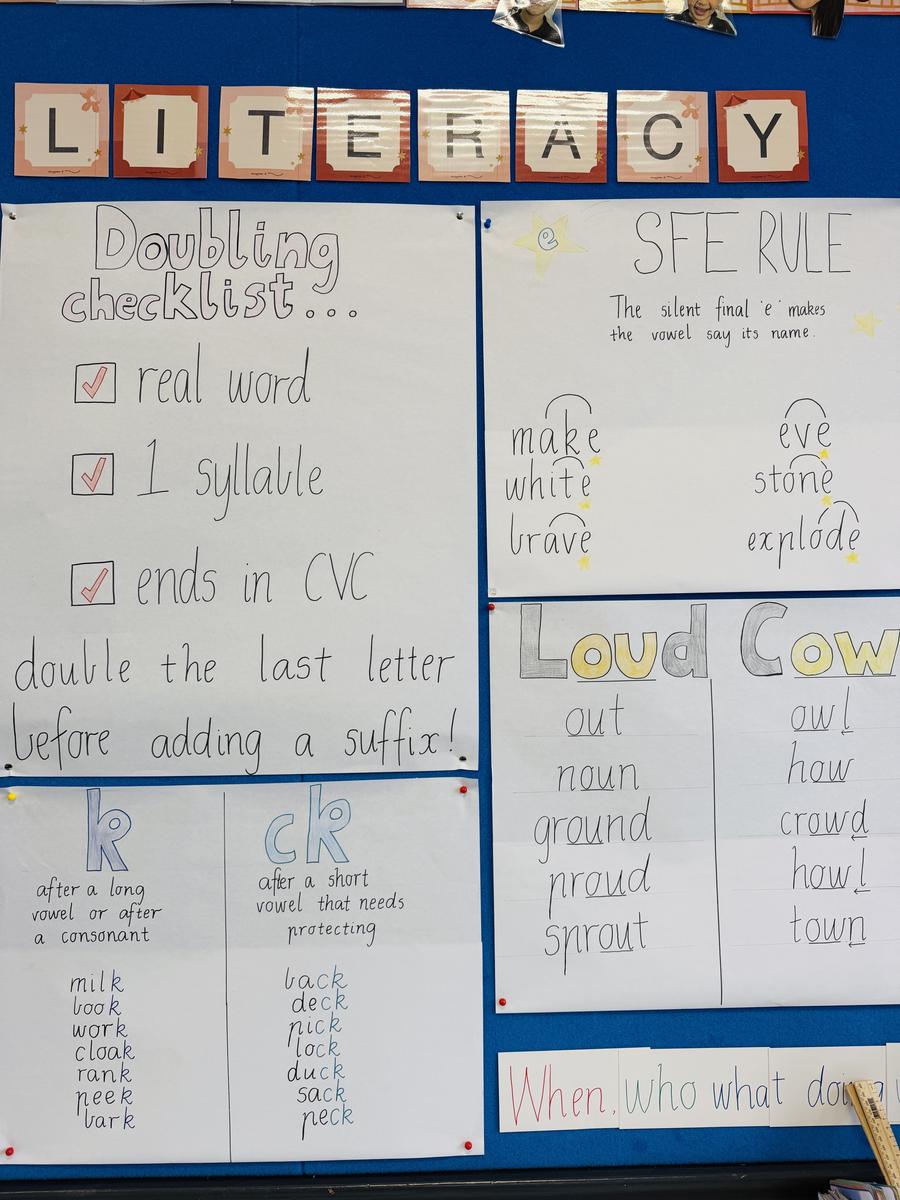 LITERACY
Doubling
checklist...
real word
1 syllable
ends in CVC
double the last letter
before adding a suffix!
e
SFE RULE
The silent final 'e' makes
the vowel say its name.
make
white
brave
eve
stone
explode
k
after a long
vowel or after
a consonant
milk
book
work
cloak
rank
peek
bark
ck
after a short
vowel that needs
protecting
back
deck
pick
lock
duck
sack
peck
Loud
out
noun
ground
proud
sprout
Cow
owl
how
crowd
howl
town
When, who what